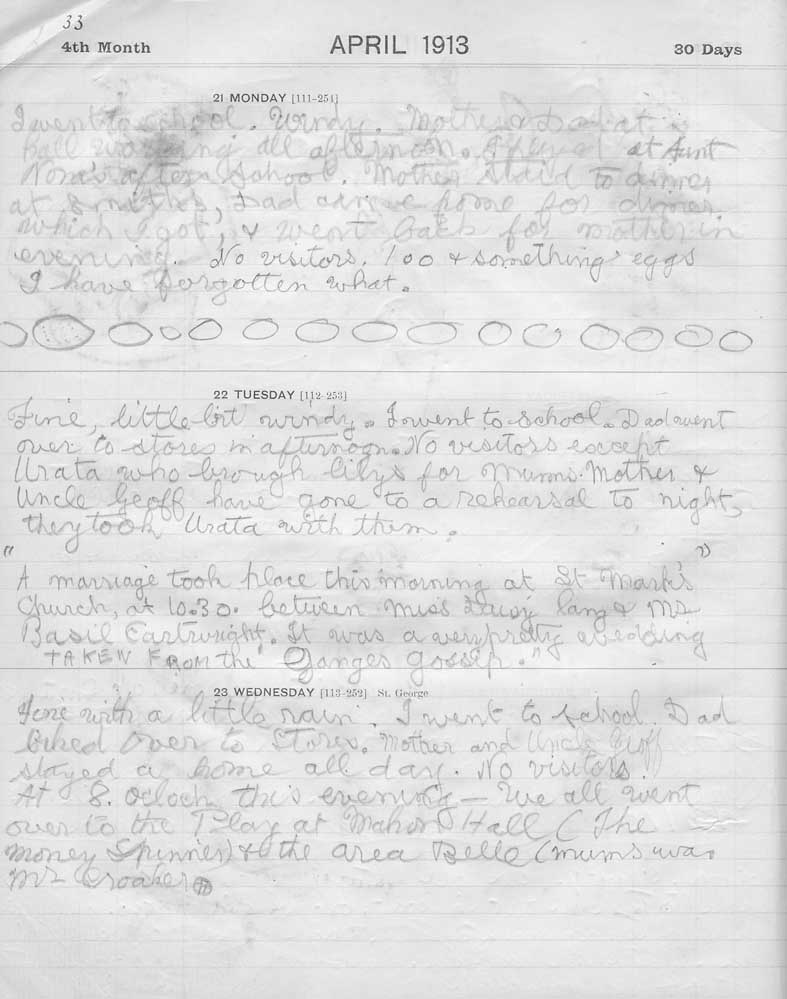 33
4th Month APRIL 1913 30 Days
21 MONDAY [111-254]
I went to school. Windy. Mother & Dad at
Ball all afternoon. I at Aunt
Nora's after School. Mother staid to dinner
at Smiths, Dad home for dinner
which I got, & went back for mother in
evening. No visitors. 100 & something eggs
I have forgotten what.
22 TUESDAY [112-253]
Fine, little bit windy. I went to school. Dad went
over to stores in afternoon. No visitors except
Urata who brough lilys for Mums. Mother &
Uncle Geoff have gone to a rehearsal to night,
they took Urata with them.
" "
A marriage took place this morning at St Mark's
Church, at 10.30. between Miss Daisy Lang & Mr
Basil Cartwright. It was a very pretty wedding
TAKEN FROM the "Ganges gossip."
23 WEDNESDAY [113-252] St. George
Fine with a little rain. I went to school. Dad
biked over to Stores. Mother and Uncle Geoff
stayed a home all day. No visitors.
At 8. oclock this evening – We all went
over to the Play at Mahon Hall (The
Money Spinner) & the area Belle (mums was
Mrs Croaker)